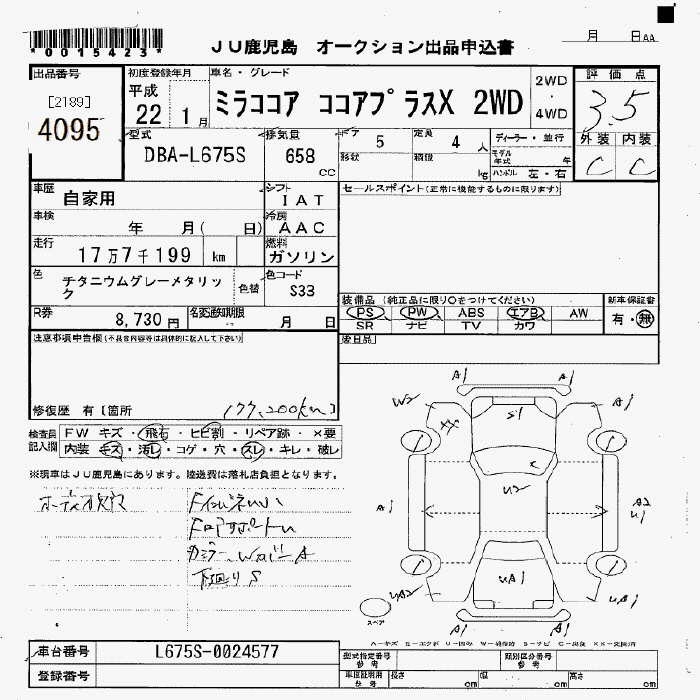 *0015423*
JU鹿児島 オークション出品申込書
月 日AA
出品番号
[2189]
4095
初度登録年月
平成
22 1月
車名・グレード
ミラココア ココアプラスX 2WD
2WD
・
4WD
評価点
3.5
外装 内装
C C
型式
DBA-L675S
排気量
658
cc
ドア
5
定員
4 人
形状
積載
kg
ディーラー・並行
モデル年式 年
ハンドル 左・右
車歴
自家用
シフト
IAT
車検
年 月( 日)
冷房
AAC
走行
17万7千199 km
燃料
ガソリン
色
チタニウムグレーメタリック
色替
色コード
S33
R券
8,730円
名変通知期限
月 日
セールスポイント(正常に機能するものに限ります)
装備品(純正品に限り○をつけてください)
PS PW ABS エアB AW
SR ナビ TV カワ
新車保証書
有・無
後日品
注意事項申告欄(不具合内容等は具体的に記入して下さい)
修復歴 有[箇所
177,200km]
検査員
記入欄
FW キズ・飛石・ヒビ割・リペア跡・×要
内装 キズ・汚レ・コゲ・穴・スレ・キレ・破レ
※現車はJU鹿児島にあります。陸送費は落札店負担となります。
下回りS
A1 A1
W2
S1
A1
U2
A1
A2
U1
UA1
UA2
UA1
A1 A1
スペア
車台番号
L675S-0024577
登録番号
型式指定番号
参考
類別区分番号
参考
車庫証明用
参考
長さ cm
幅 cm
高さ cm